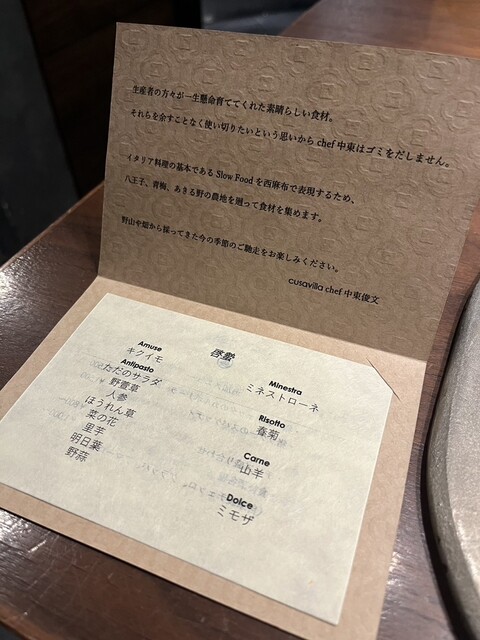 生産者の方々が一生懸命育ててくれた素晴らしい食材。
それらを余すことなく使い切りたいという思いから chef 中東はゴミをだしません。
イタリア料理の基本である Slow Food を西麻布で表現するため、
八王子、青梅、あきる野の農地を廻って食材を集めます。
野山や畑から採ってきた今の季節のご馳走をお楽しみください。
cusavilla chef 中東俊文
啓蟄
Amuse
キクイモ
Antipasto
ただのサラダ
野萱草
人参
ほうれん草
菜の花
里芋
明日葉
野蒜
Minestra
ミネストローネ
Risotto
春菊
Carne
山羊
Dolce
ミモザ